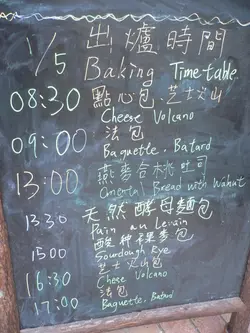 1/5 出爐時間
Baking Time-table
08:30 點心包．芝士火山
Cheese Volcano
09:00 法包
Baguette. Batard
13:00 燕麥合桃吐司
Omental Bread with Walnut
1330 天然酵母麵包
Pain au Levain
1500 酸種裸麥包
Sourdough Rye
16:30 芝士火山
Chese Volcano
17:00 法包
Baguette. Batard